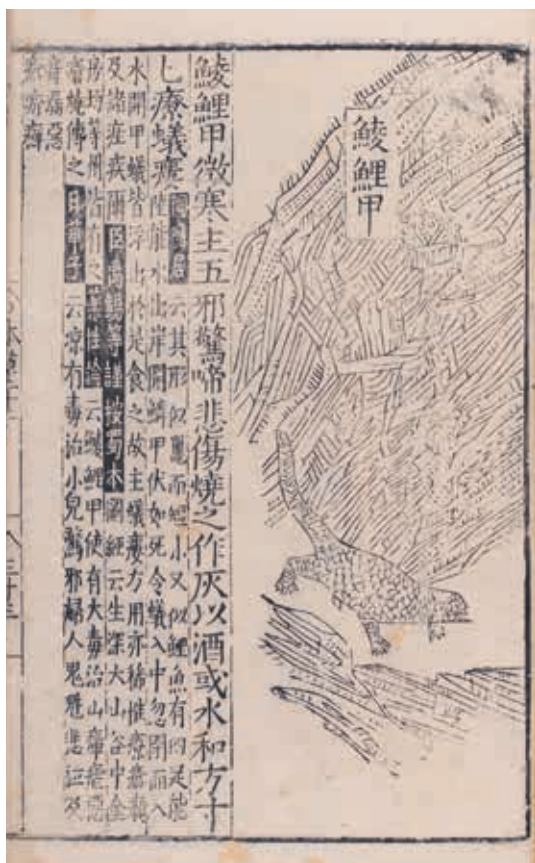 鯪鯉甲
鯪鯉甲微寒主五邪驚啼悲傷燒之作灰以酒或水和方寸
匕療蟻瘻陶隱居云其形似鼉而短小又似鯉魚有四足能
陸能水出岸開鱗甲伏如死令蟻入中忽閉而入
水開甲蟻皆浮出於是食之故主蟻瘻方用亦稀惟療瘡癩
及諸疰疾爾臣禹錫等謹按蜀本圖經云生深大山谷中金
房均等州皆有之藥性論云鯪鯉甲使有大毒治山瘴瘧惡
瘡燒傅之日華子云凉有毒治小兒驚邪婦人鬼魅悲泣及
痔漏惡
瘡疥癬